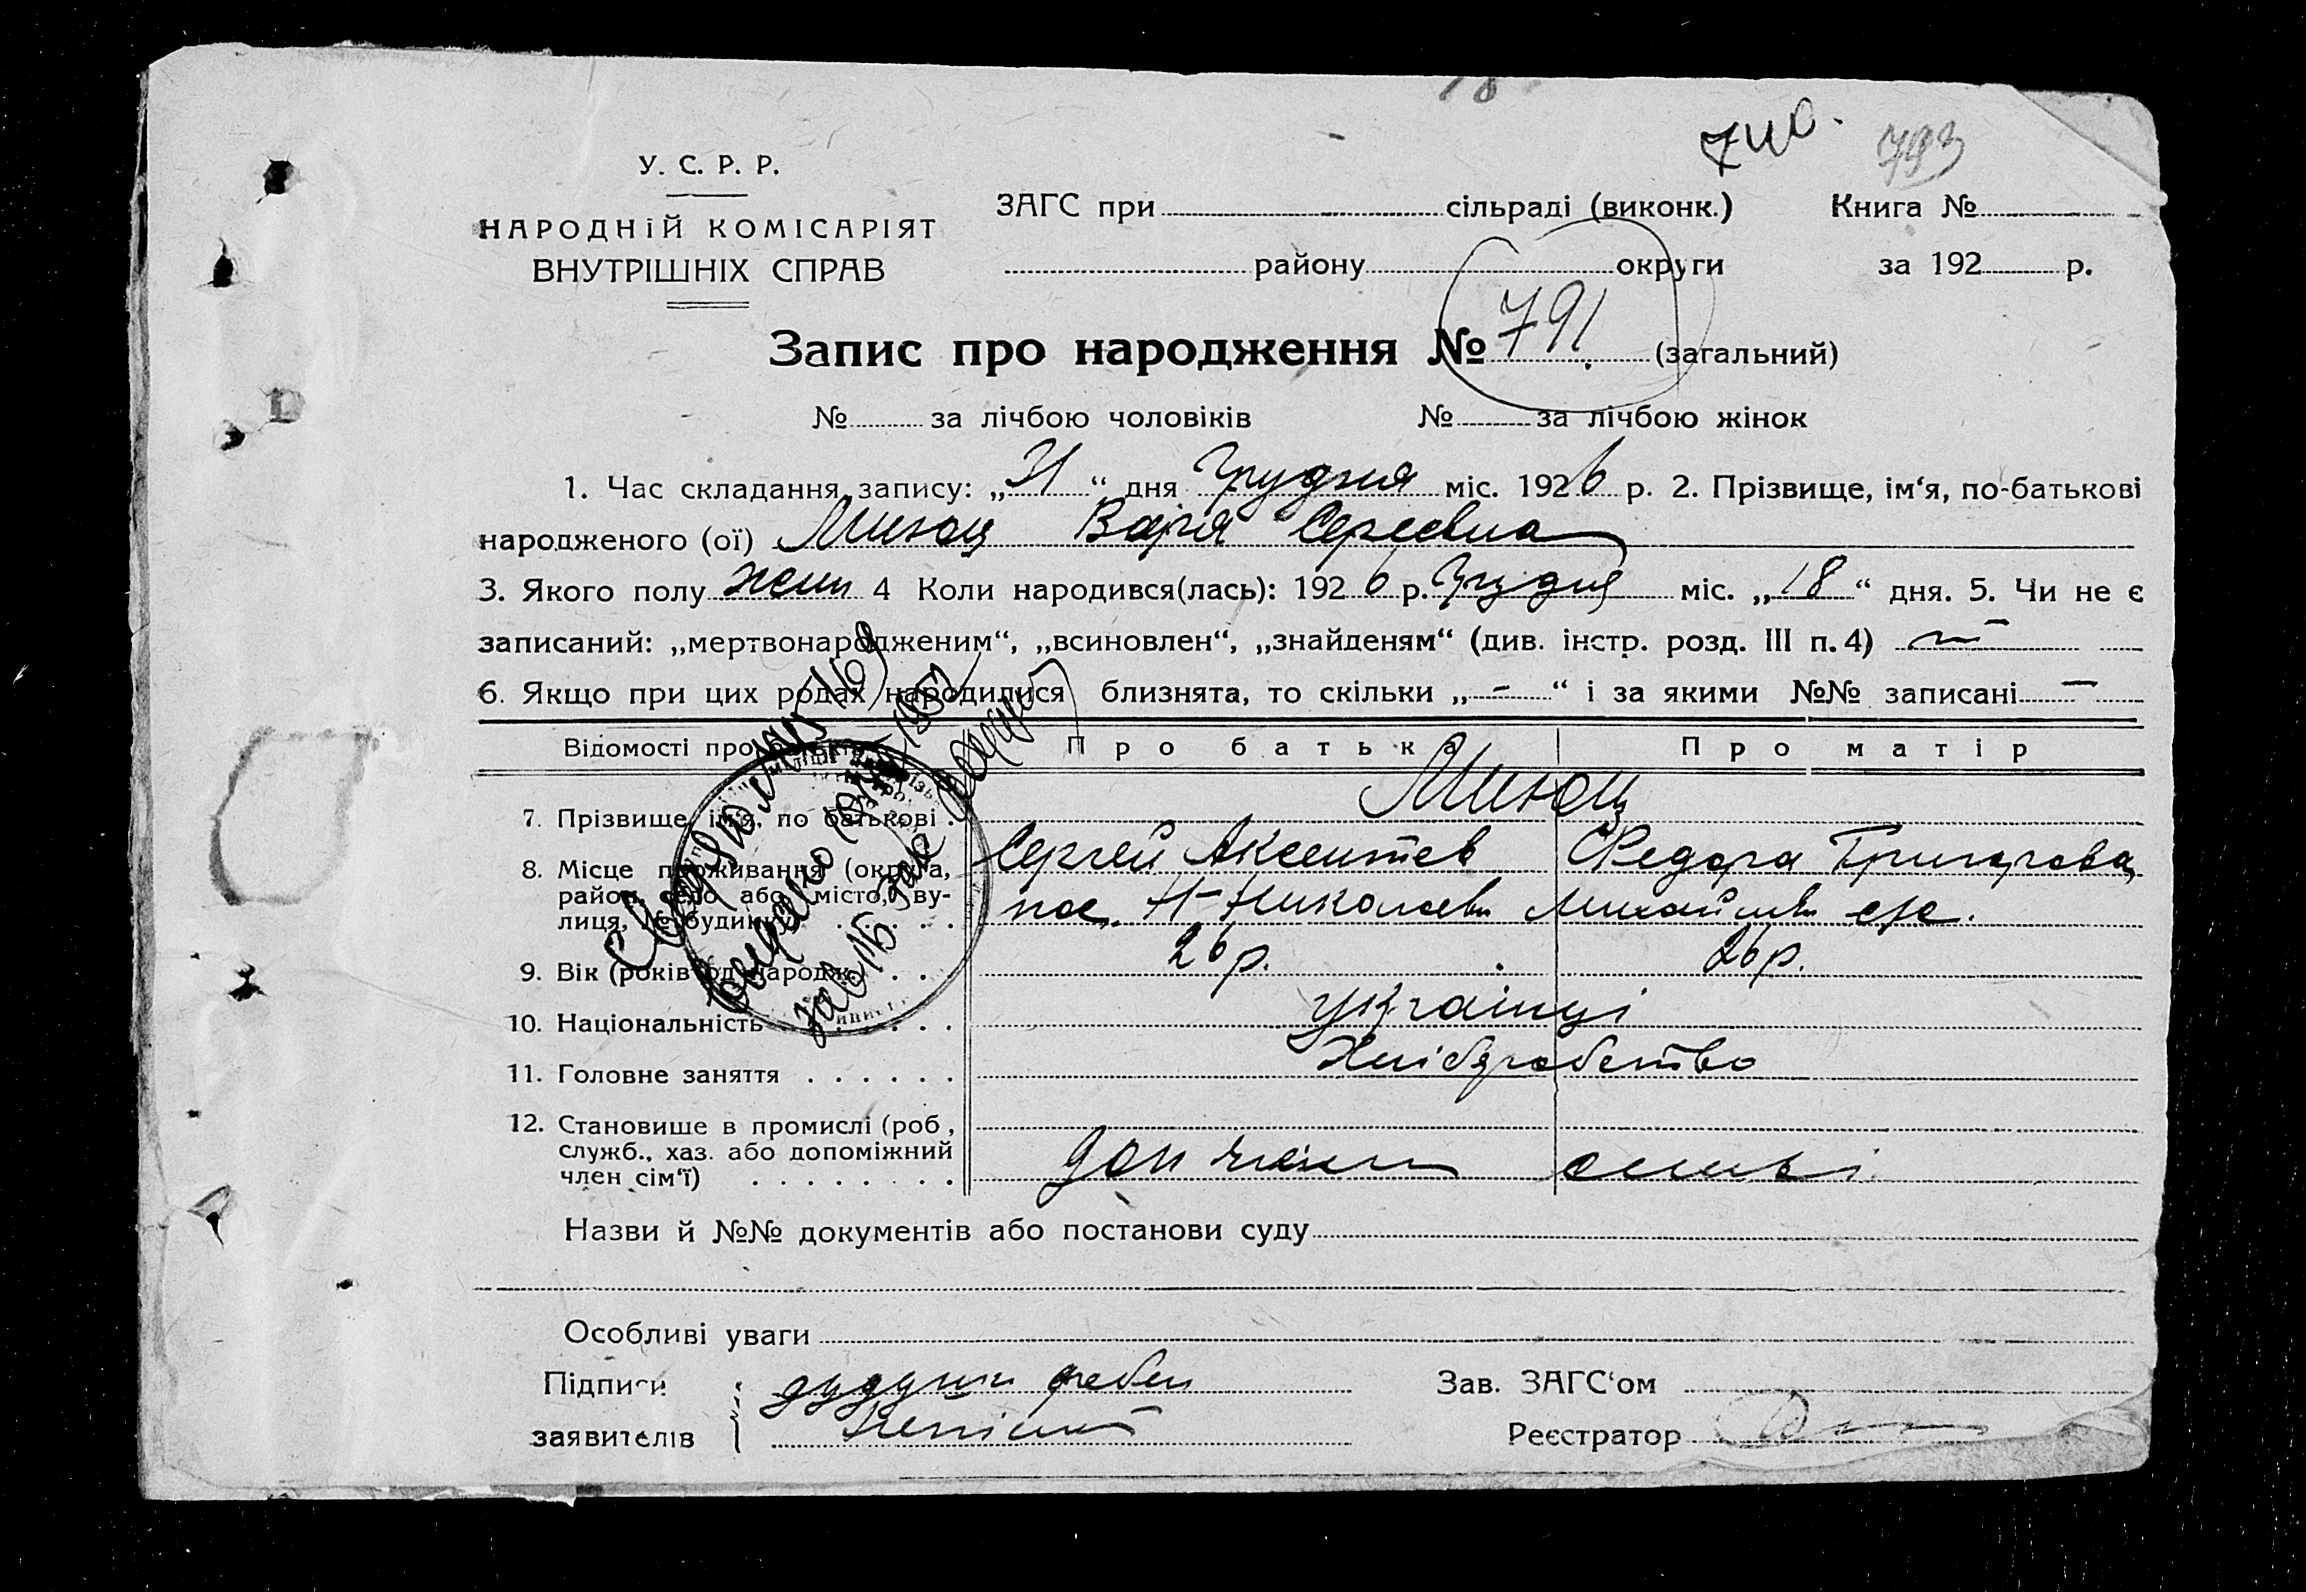 18
740.
793
У. С. Р. Р.
НАРОДНІЙ КОМІСАРІЯТ
ВНУТРІШНІХ СПРАВ
ЗАГС при сільраді (виконк.) Книга №
району округи за 192 р.
Запис про народження № 791 (загальний)
№ за лічбою чоловіків № за лічбою жінок
1. Час складання запису: „31“ дня Грудня міс. 1926 р. 2. Прізвище, ім‘я, по-батькові
народженого (ої) Варя Сергеевна
3. Якого полу жен 4 Коли народився(лась): 1926 р. Грудня міс. „18“ дня. 5. Чи не є
записаний: „мертвонародженим“, „всиновлен“, „знайденям“ (див. інстр. розд. III п. 4) —
6. Якщо при цих родах народилися близнята, то скільки „-“ і за якими №№ записані —
Відомості про Про батька Про матір
7. Прізвище, ім‘я, по батькові
Сергей Аксентев Федора Григорова
8. Місце проживання (округа,
район, село або місто, ву-
лиця, № будинку)
пос. Н-Николаевк Михайлівк с/р.
9. Вік (років од народж.) 26 р. 26 р.
10. Національність українці
11. Головне заняття Хліборобство
12. Становище в промислі (роб,
служб., хаз. або допоміжний
член сім‘ї) доп член
Назви й №№ документів або постанови суду
Особливі уваги
Підписи
заявителів
Зав. ЗАГС‘ом
Реєстратор